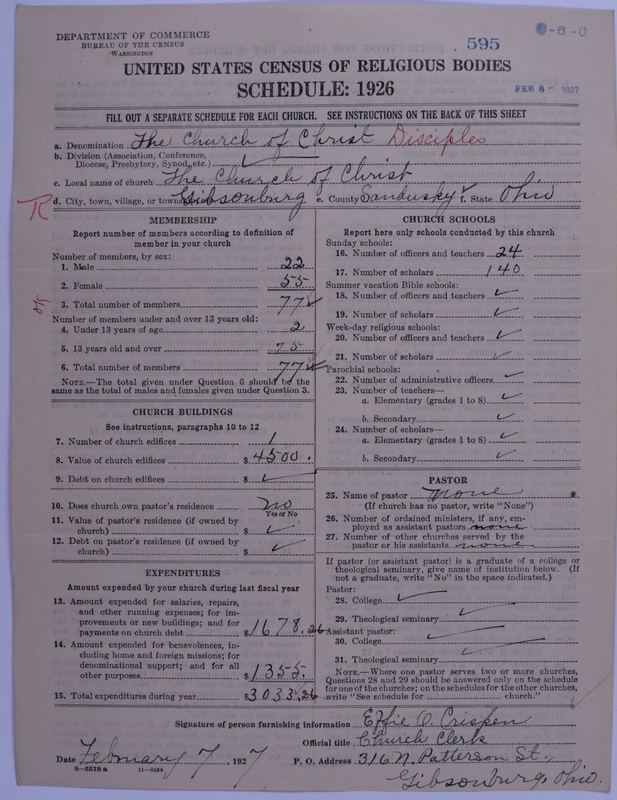 DEPARTMENT OF COMMERCE
BUREAU OF THE CENSUS
WASHINGTON
595
0-6-0
FEB 8 - 1927
UNITED STATES CENSUS OF RELIGIOUS BODIES
SCHEDULE: 1926
FILL OUT A SEPARATE SCHEDULE FOR EACH CHURCH. SEE INSTRUCTIONS ON THE BACK OF THIS SHEET
a. Denomination The Church of Christ Disciples
b. Division (Association, Conference,
Diocese, Presbytery, Synod, etc.) ✓
c. Local name of church The Church of Christ
R d. City, town, village, or township Gibsonburg e. County Sandusky f. State Ohio
MEMBERSHIP
Report number of members according to definition of
member in your church
Number of members, by sex:
1. Male 22
2. Female 55
3. Total number of members 77 ✓
ok
Number of members under and over 13 years old:
4. Under 13 years of age 2
5. 13 years old and over 75
6. Total number of members 77 ✓
NOTE.—The total given under Question 6 should be the
same as the total of males and females given under Question 3.
CHURCH BUILDINGS
See instructions, paragraphs 10 to 12
7. Number of church edifices 1
8. Value of church edifices $ 4500.
9. Debt on church edifices $ ✓
10. Does church own pastor's residence no
Yes or No
11. Value of pastor's residence (if owned by
church) $ ✓
12. Debt on pastor's residence (if owned by
church) $ ✓
EXPENDITURES
Amount expended by your church during last fiscal year
13. Amount expended for salaries, repairs,
and other running expenses; for im-
provements or new buildings; and for
payments on church debt $ 1678.26
14. Amount expended for benevolences, in-
cluding home and foreign missions; for
denominational support; and for all
other purposes $ 1355.
15. Total expenditures during year $ 3033.26
CHURCH SCHOOLS
Report here only schools conducted by this church
Sunday schools:
16. Number of officers and teachers 24
17. Number of scholars 140
Summer vacation Bible schools:
18. Number of officers and teachers ✓
19. Number of scholars ✓
Week-day religious schools:
20. Number of officers and teachers ✓
21. Number of scholars ✓
Parochial schools:
22. Number of administrative officers ✓
23. Number of teachers—
a. Elementary (grades 1 to 8) ✓
b. Secondary ✓
24. Number of scholars—
a. Elementary (grades 1 to 8) ✓
b. Secondary ✓
PASTOR
25. Name of pastor None
(If church has no pastor, write "None")
26. Number of ordained ministers, if any, em-
ployed as assistant pastors none
27. Number of other churches served by the
pastor or his assistants none
If pastor (or assistant pastor) is a graduate of a college or
theological seminary, give name of institution below. (If
not a graduate, write "No" in the space indicated.)
Pastor:
28. College ✓
29. Theological seminary ✓
Assistant pastor:
30. College ✓
31. Theological seminary ✓
NOTE.—Where one pastor serves two or more churches,
Questions 28 and 29 should be answered only on the schedule
for one of the churches; on the schedules for the other churches,
write "See schedule for church."
Signature of person furnishing information Effie O. Crispen
Official title Church Clerk
Date February 7, 1927
P. O. Address 316 N. Patterson St.,
8—5518a 11—9064
Gibsonburg, Ohio.